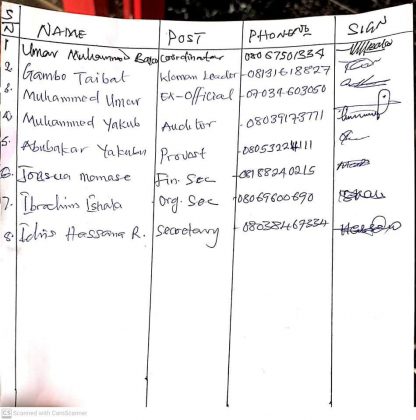 S/N NAME POST PHONE NO SIGN
1 Umar Muhammed Bala coordinator 08067501334
2. Gambo Taibat Woman Leader 08131618827
3. Muhammed Umar Ex-Official 07034603050
4. Muhammed Yakub Auditor 08039173771
5. Abubakar Yakubu Provost 08053224111
6. Joshua mamase Fin. Sec 08188240215
7. Ibrahim Ishaka Org. Sec 08069600690
8. Idris Hassana R. Secretary 08038467334
CS Scanned with CamScanner